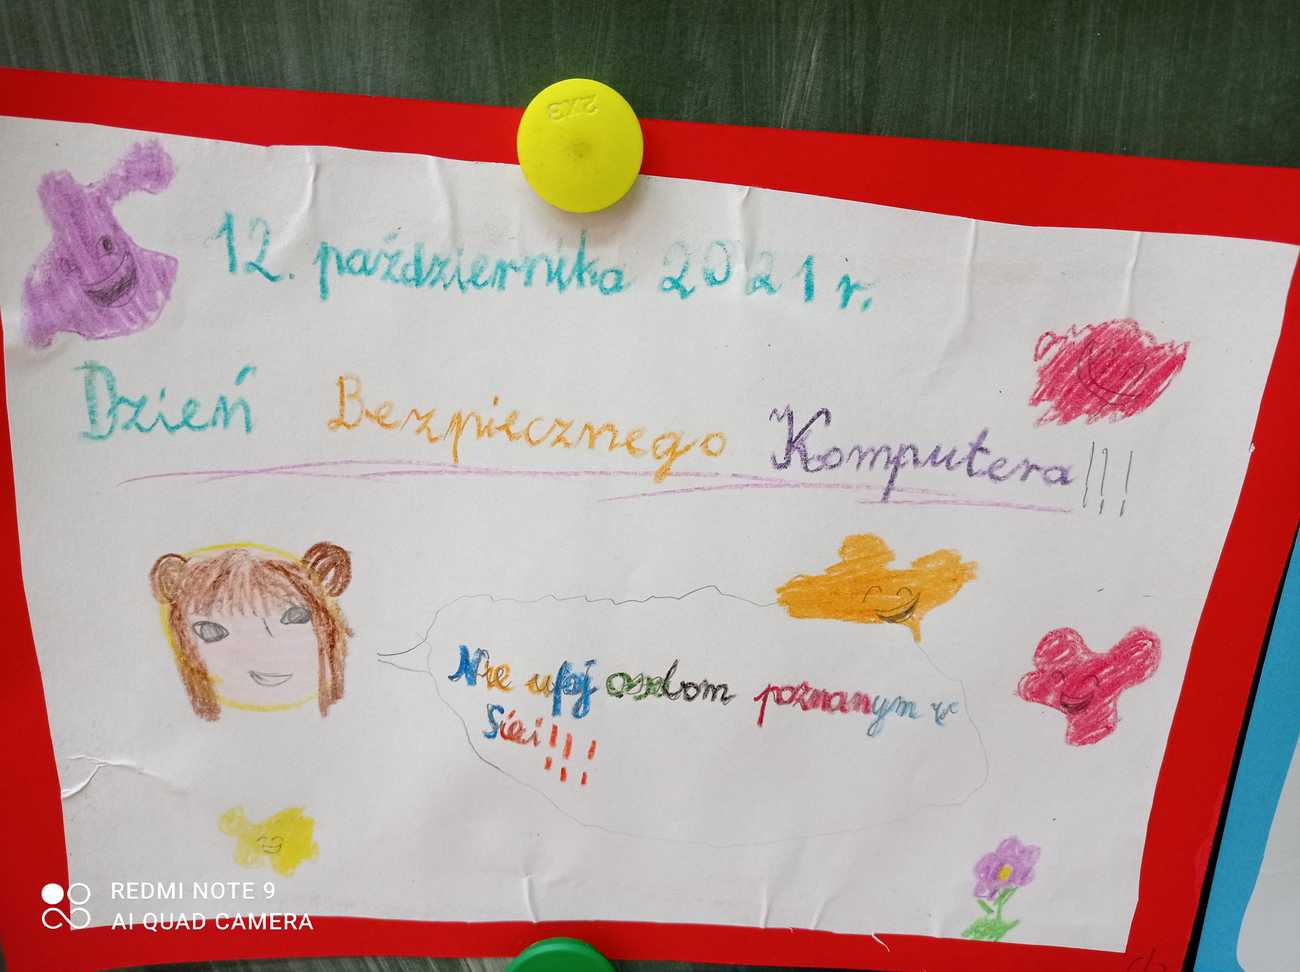 2X3
12. października 2021 r.
Dzień Bezpiecznego Komputera!!!
Nie ufaj osobom poznanym w
Sieci!!!
REDMI NOTE 9
AI QUAD CAMERA